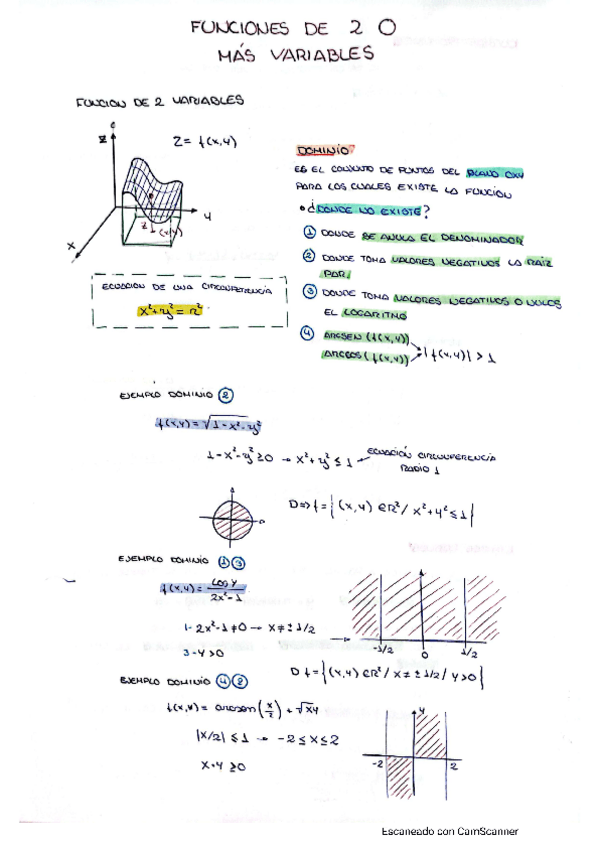 FUNCIONES DE 2 O
MÁS VARIABLES
FUNCION DE 2 VARIABLES
Z
Z = f(x,y)
y
x
Z ⊥ (x,y)
ECUACION DE UNA CIRCUNFERENCIA
x²+y² = r²
DOMINIO
ES EL CONJUNTO DE PUNTOS DEL PLANO OXY
PARA LOS CUALES EXISTE LA FUNCION
• ¿DONDE NO EXISTE?
① DONDE SE ANULA EL DENOMINADOR
② DONDE TOMA VALORES NEGATIVOS LA RAIZ
PAR.
③ DONDE TOMA VALORES NEGATIVOS O NULOS
EL LOGARITMO
④ ARCSEN (f(x,y))
ARCCOS (f(x,y))
|f(x,y)| > 1
EJEMPLO DOMINIO ②
f(x,y) = √1-x²-y²
1-x²-y² ≥ 0 → x²+y² ≤ 1
ECUACIÓN CIRCUNFERENCIA
RADIO 1
D => f = { (x,y) ∈ R² / x²+y² ≤ 1 }
EJEMPLO DOMINIO ① ③
f(x,y) = LOG y / 2x²-1
1- 2x²-1 ≠ 0 → x ≠ ± 1/2
3- y > 0
-1/2 0 1/2
D f = { (x,y) ∈ R² / x ≠ ± 1/2 / y > 0 }
EJEMPLO DOMINIO ④ ②
f(x,y) = arcsen (x/2) + √xy
|x/2| ≤ 1 → -2 ≤ x ≤ 2
x·y ≥ 0
y
-2 2
Escaneado con CamScanner